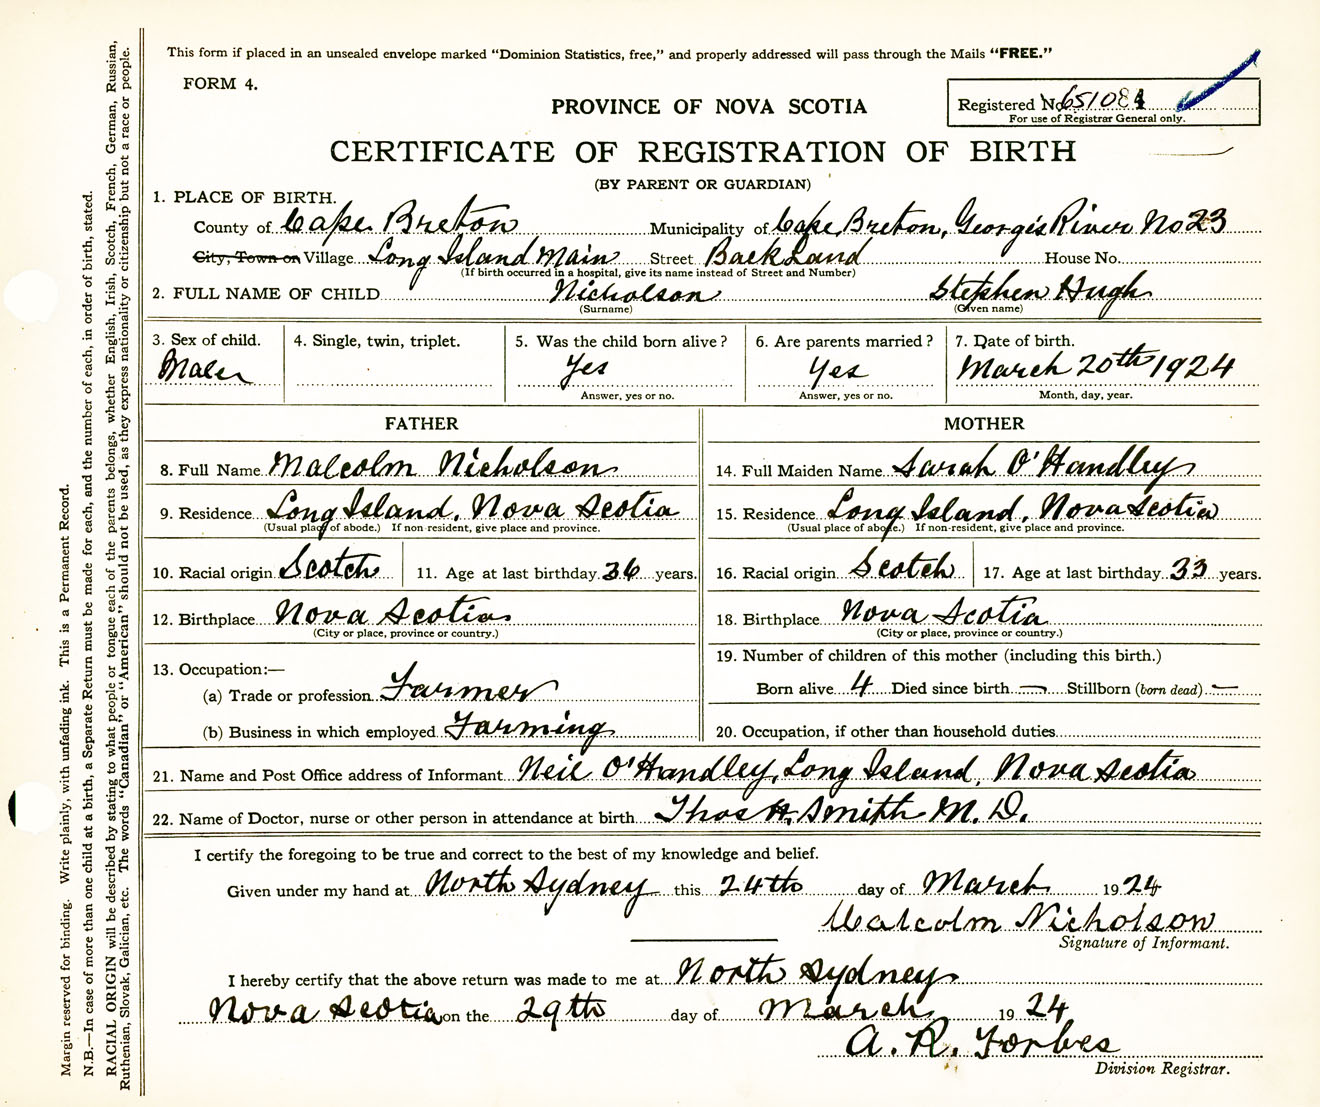 This form if placed in an unsealed envelope marked "Dominion Statistics, free," and properly addressed will pass through the Mails "FREE."
FORM 4.
PROVINCE OF NOVA SCOTIA
Registered No. 651084
For use of Registrar General only.
CERTIFICATE OF REGISTRATION OF BIRTH
(BY PARENT OR GUARDIAN)
1. PLACE OF BIRTH.
County of Cape Breton Municipality of Cape Breton, Georges River No 23
City, Town or Village Long Island Main Street Back Land House No.
(If birth occurred in a hospital, give its name instead of Street and Number)
2. FULL NAME OF CHILD Nicholson Stephen Hugh
(Surname) (Given name)
3. Sex of child. 4. Single, twin, triplet. 5. Was the child born alive? 6. Are parents married? 7. Date of birth.
Male Yes Yes March 20th 1924
Answer, yes or no. Answer, yes or no. Month, day, year.
FATHER MOTHER
8. Full Name Malcolm Nicholson 14. Full Maiden Name Sarah O'Handley
9. Residence Long Island, Nova Scotia 15. Residence Long Island, Nova Scotia
(Usual place of abode.) If non-resident, give place and province. (Usual place of abode.) If non-resident, give place and province.
10. Racial origin Scotch 11. Age at last birthday 36 years. 16. Racial origin Scotch 17. Age at last birthday 33 years.
12. Birthplace Nova Scotia 18. Birthplace Nova Scotia
(City or place, province or country.) (City or place, province or country.)
13. Occupation:— 19. Number of children of this mother (including this birth.)
(a) Trade or profession Farmer Born alive 4 Died since birth — Stillborn (born dead) —
(b) Business in which employed Farming 20. Occupation, if other than household duties
21. Name and Post Office address of Informant Neil O'Handley, Long Island, Nova Scotia
22. Name of Doctor, nurse or other person in attendance at birth Thos H. Smith M. D.
I certify the foregoing to be true and correct to the best of my knowledge and belief.
Given under my hand at North Sydney this 24th day of March 1924
Malcolm Nicholson
Signature of Informant.
I hereby certify that the above return was made to me at North Sydney
Nova Scotia on the 29th day of March 1924
A. R. Forbes
Division Registrar.
Margin reserved for binding. Write plainly, with unfading ink. This is a Permanent Record.
N.B.—In case of more than one child at a birth, a Separate Return must be made for each, and the number of each, in order of birth, stated.
RACIAL ORIGIN will be described by stating to what people or tongue each of the parents belongs, whether English, Irish, Scotch, French, German, Russian,
Ruthenian, Slovak, Galician, etc. The words "Canadian" or "American" should not be used, as they express nationality or citizenship but not a race or people.